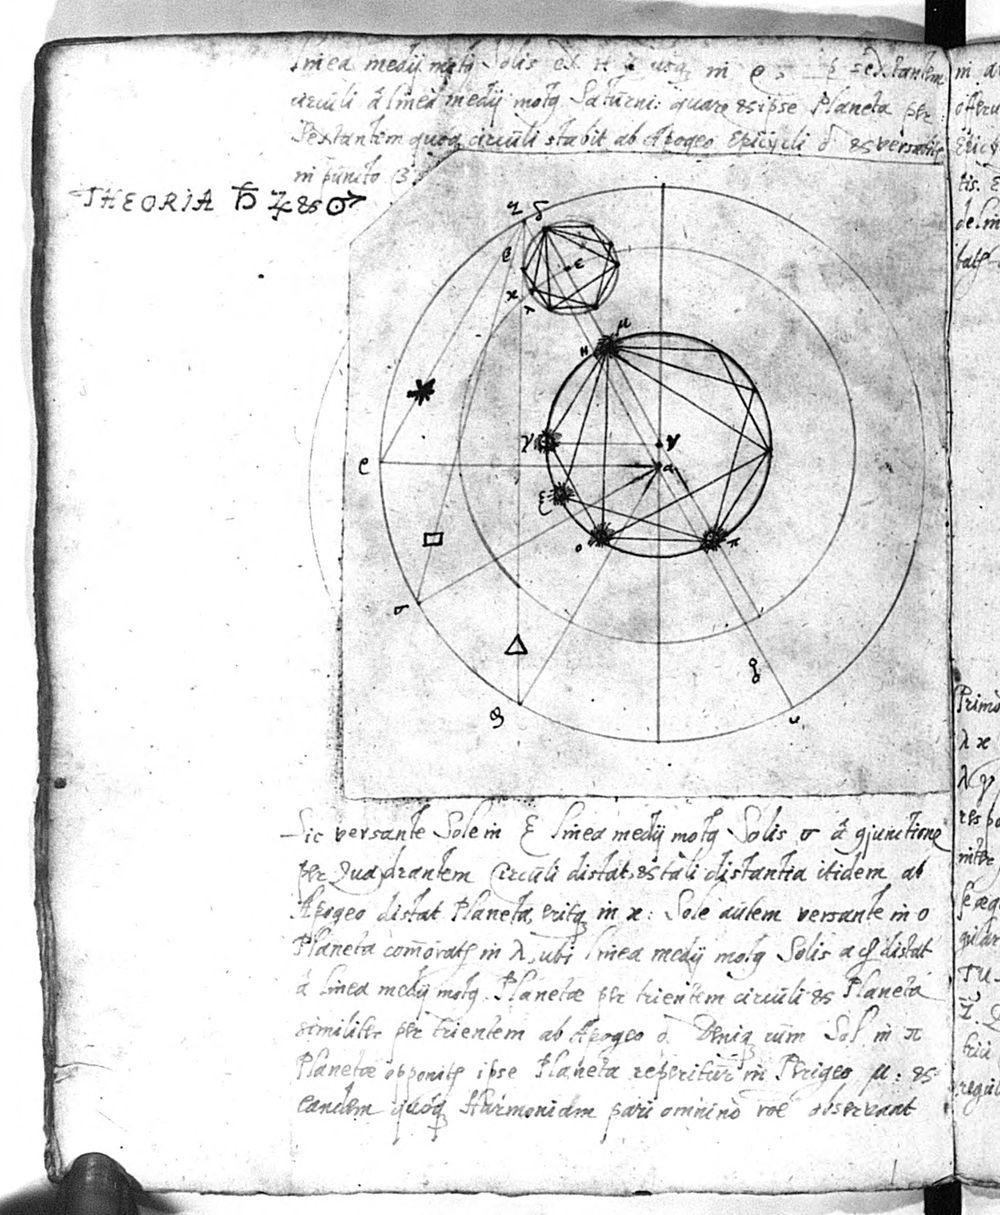 linea medij motꝗ Solis ex H in ϱ sextantem
circuli â linea medij motꝗ Saturni: quare & ipse Planeta per
Sextantem quoq circuli stabit ab Apogeo Epicycli δ & versabitꝭ
in puncto β.
THEORIA ♄ ♃ & ♂
η δ
β ε
κ
λ
μ
H
γ ν
ϱ a
ξ
ο π
σ
Sic versante Sole in ξ linea medij motꝗ Solis σ â gjunctione
per Quadrantem Circuli distat, & tali distantia itidem ab
Apogeo distat Planeta, eritq in κ: Sole autem versante in ο
Planeta com̄oratꝭ in λ, ubi linea medij motꝗ Solis a distat
â linea medij motꝗ Planetæ per trientem circuli & Planeta
similiter per trientem ab Apogeo δ. Deniq cum Sol in π
Planetæ opponitꝭ ipse Planeta reperitur in Perigeo μ: &
eandem quoq Harmoniam pari omnino roē observant
in
Epicy
tis.
Primo
λ κ
λ γ
inter